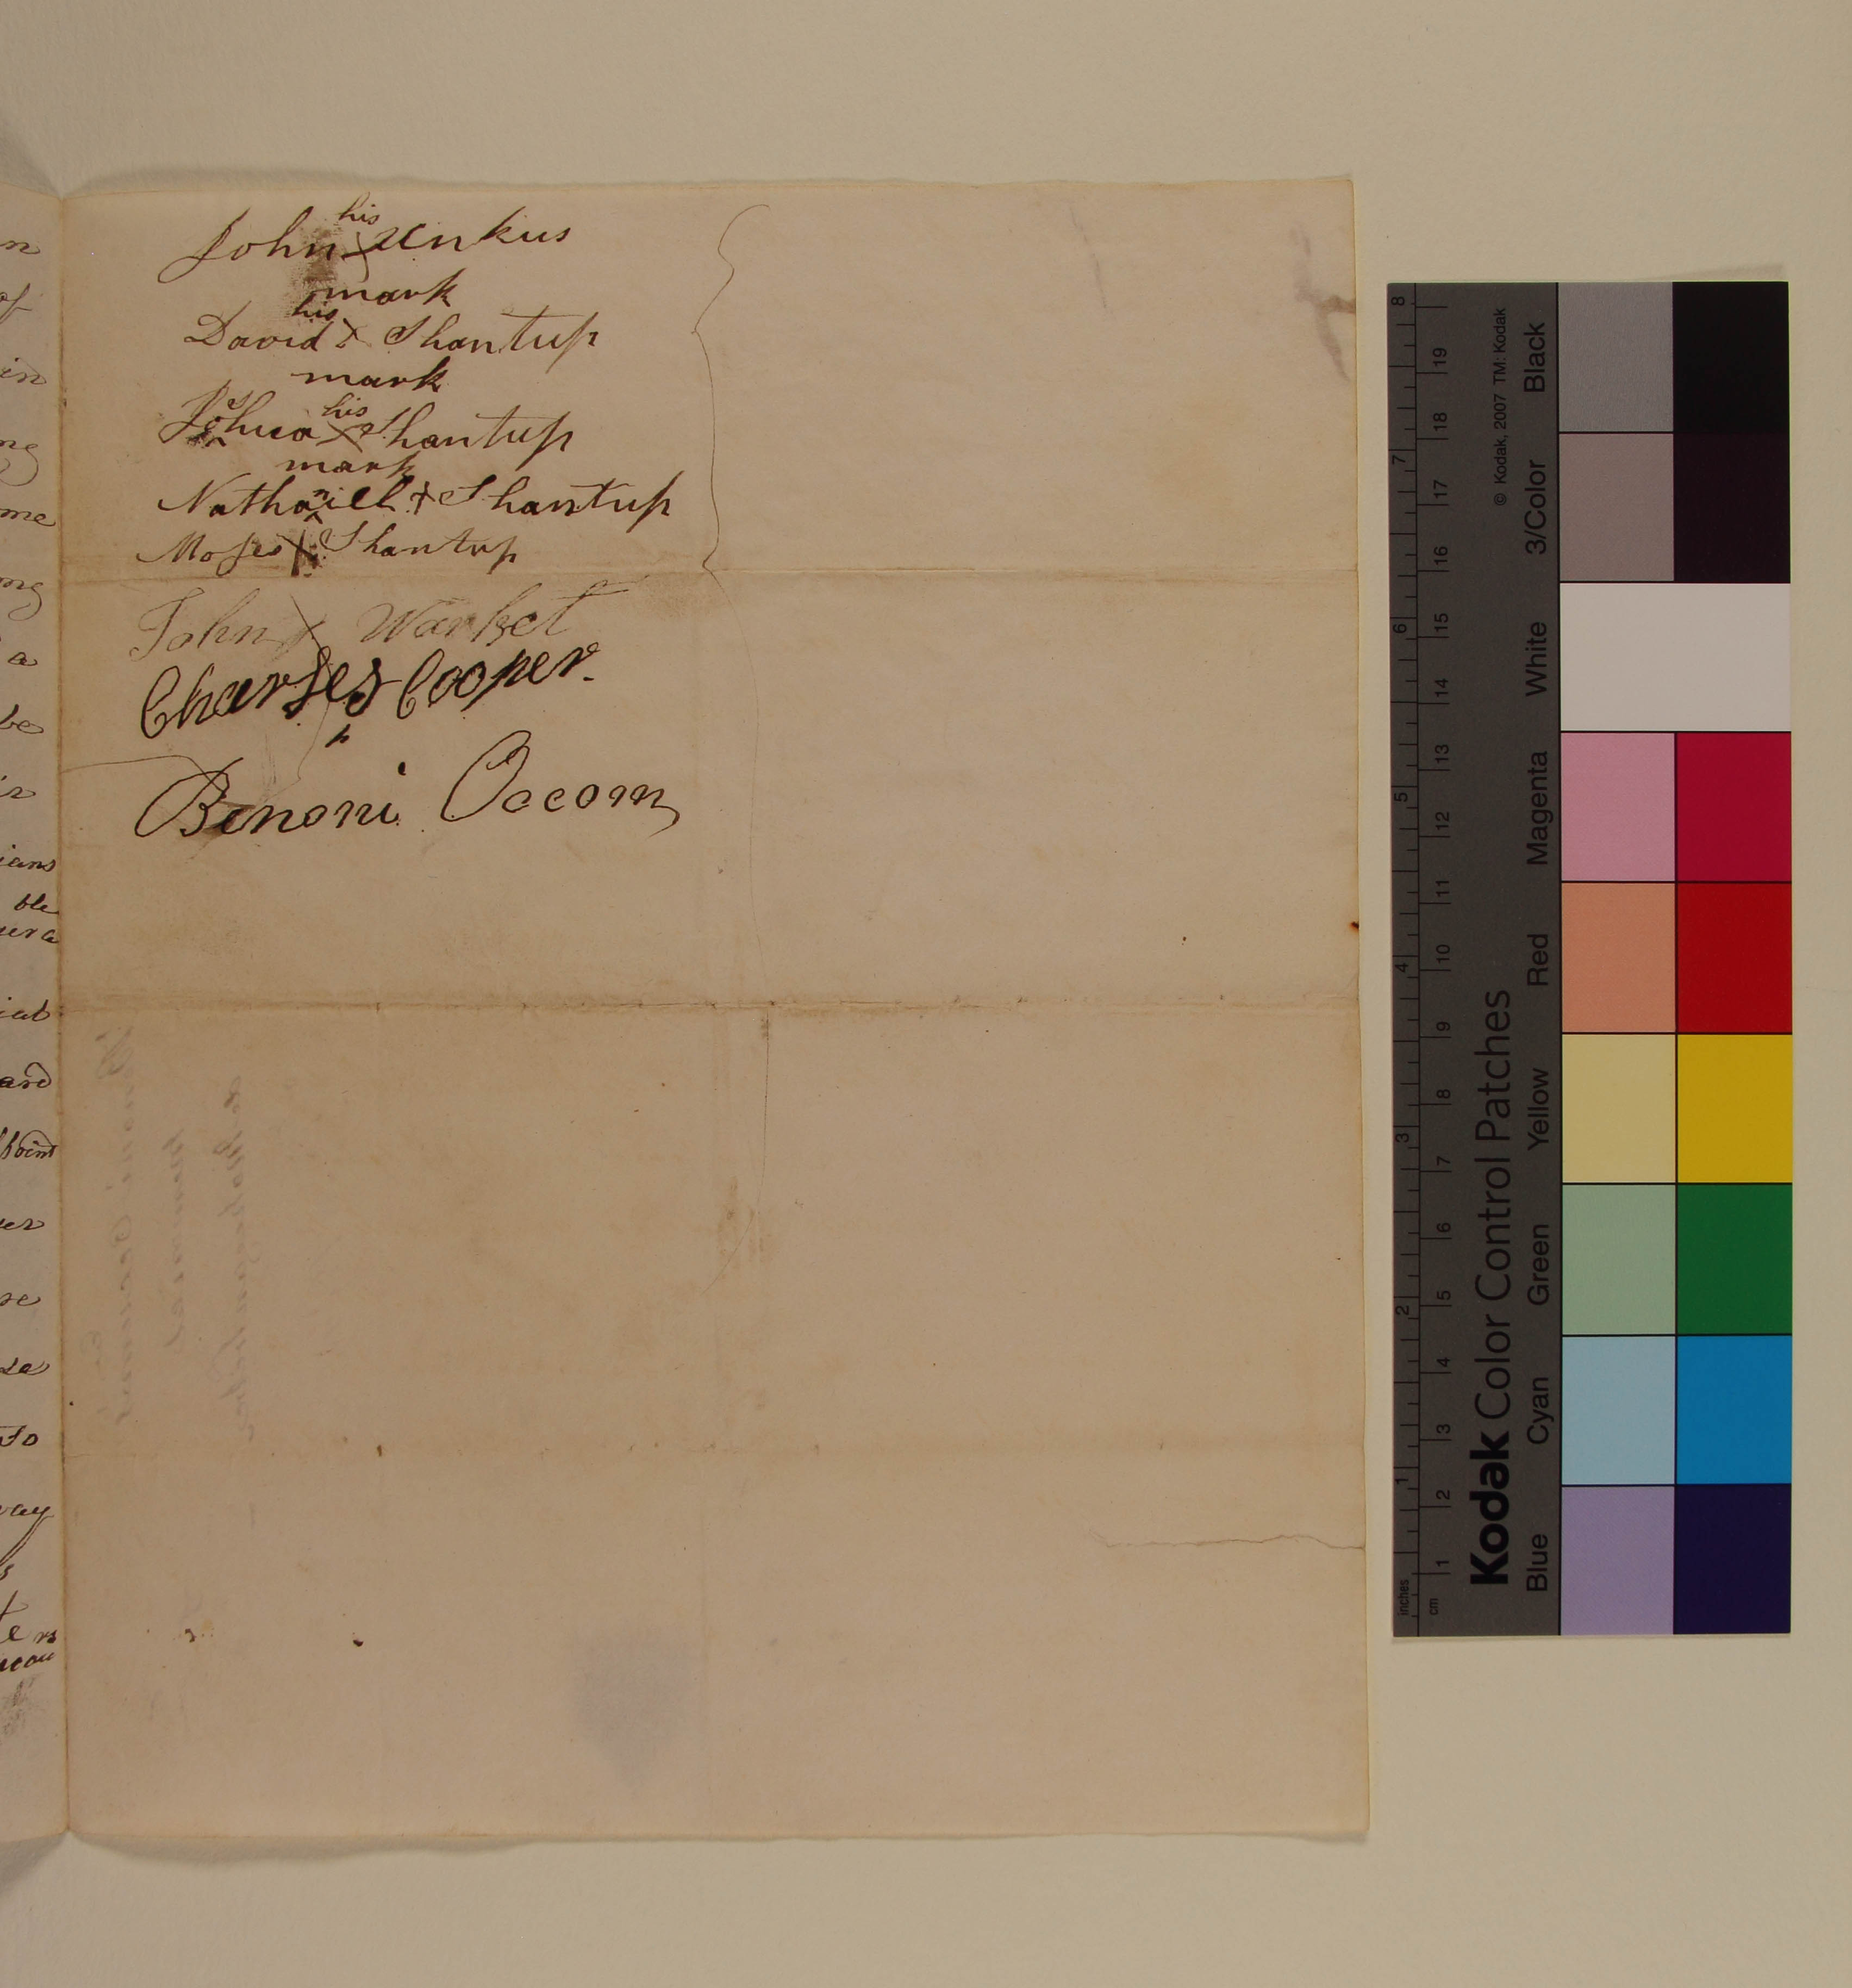 his
John X Unkus
mark
his
David X Shantup
mark
his
Joshua X Shantup
mark
Nathaniell + Shantup
Moses X Shantup
John X Warket
Charles Cooper.
Benoni Occom
n
of
in
ng
me
ng
a
be
ir
ians
ble
iab
ard
er
re
se
To
way
s
ters
Kodak Color Control Patches
© Kodak, 2007 TM: Kodak
Blue Cyan Green Yellow Red Magenta White 3/Color Black
inches 1 2 3 4 5 6 7 8
cm 1 2 3 4 5 6 7 8 9 10 11 12 13 14 15 16 17 18 19